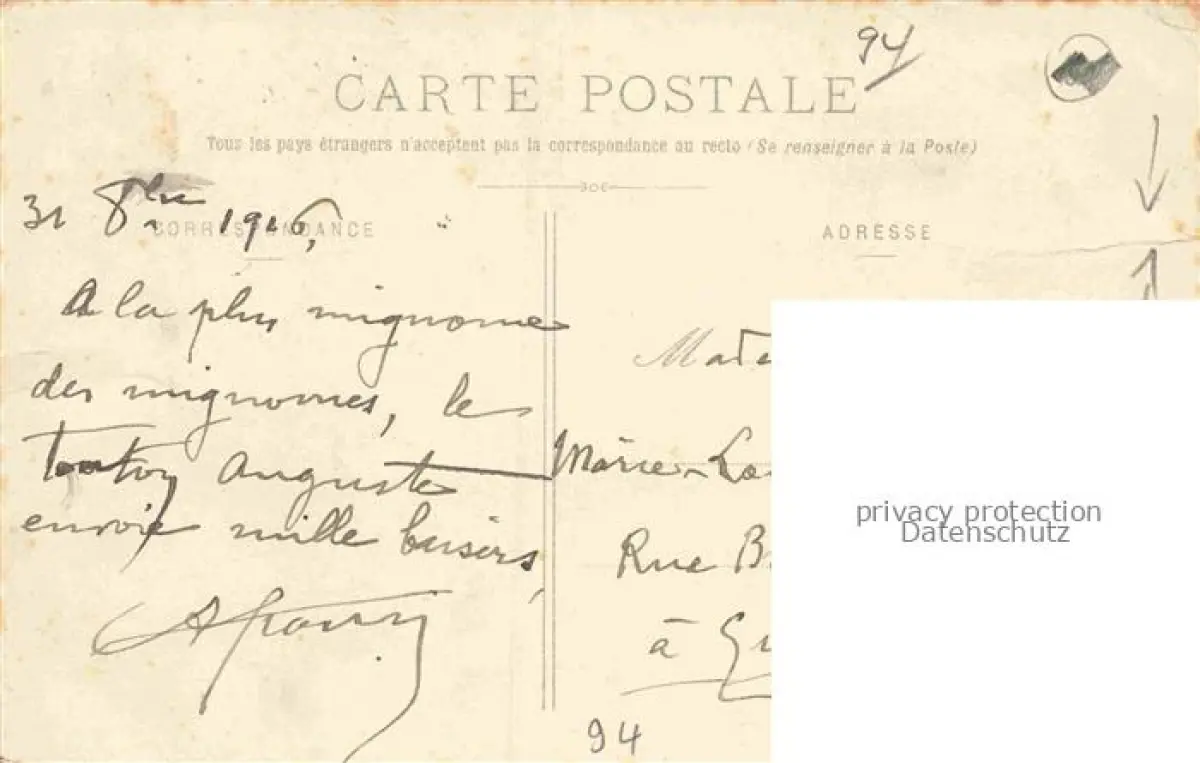 94
CARTE POSTALE
Tous les pays étrangers n'acceptent pas la correspondance au recto (Se renseigner à la Poste)
31 8bre 1916,
CORRESPONDANCE
A la plus mignonne
des mignonnes, le
tonton Auguste
envoie mille baisers,
ADRESSE
Made
Marie-
Rue B
à
94
privacy protection
Datenschutz